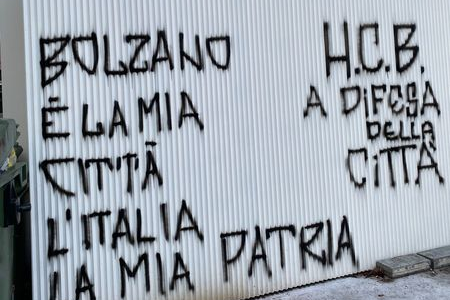 BOLZANO
È LA MIA
CITTÀ
L'ITALIA
LA MIA PATRIA
H.C.B.
A DIFESA
DELLA
CITTÀ